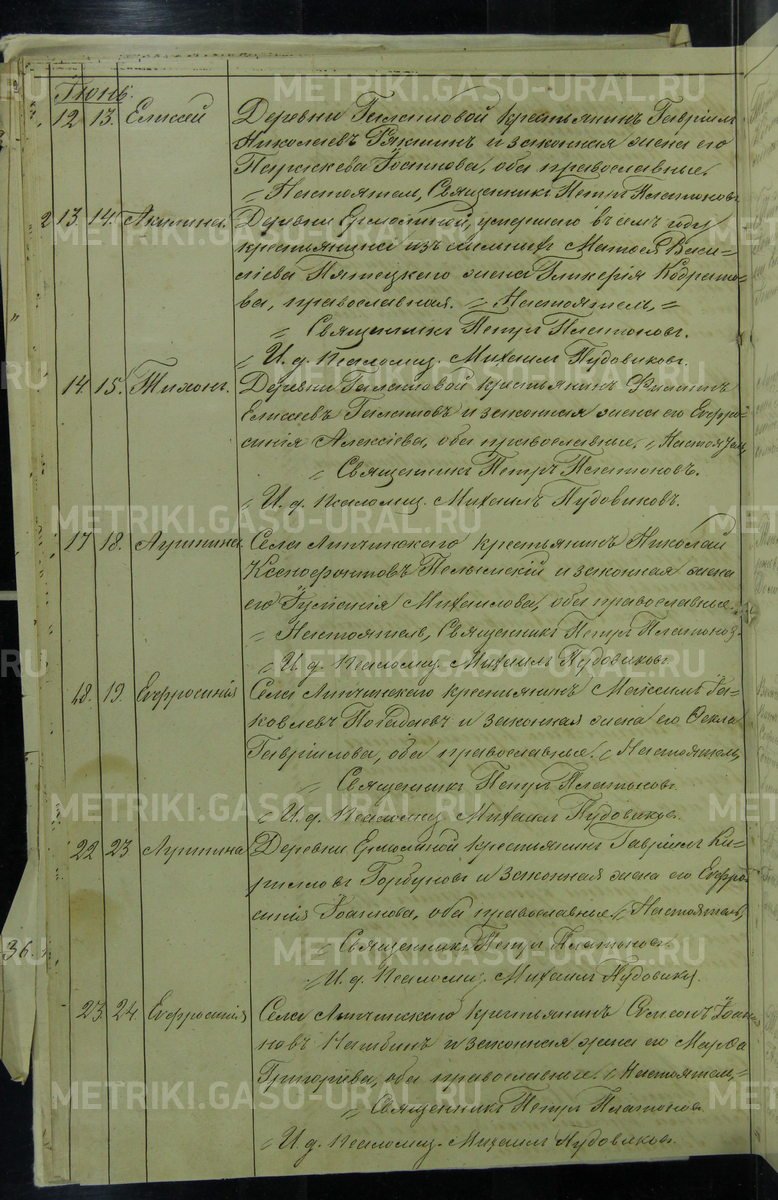 Іюнь.
12 13. Елисей Деревни Галашовой крестьянинъ Гавріилъ
Николаевъ и законная жена его
Параскева Іоаннова, оба православные.
Настоятель, Священникъ Петръ Платоновъ.
2 13. 14. Акилина. Деревни Ермолиной, умершаго въ семъ году
крестьянина изъ Матѳея Васи-
ліева Пятецкаго жена Гликерія Кодрато-
ва, православная. = Настоятель, =
= Священникъ Петръ Платоновъ.
= И. д. Псаломщ. Михаилъ Пудовиковъ.
14. 15. Тихонъ. Деревни Галашовой крестьянинъ Филиппъ
Елисеевъ Галашовъ и законная жена его Евфро-
синія Алексіева, оба православные. = Настоятель,
= Священникъ Петръ Платоновъ.
= И. д. Псаломщ. Михаилъ Пудовиковъ.
17 18. Агрипина. Села Липчинскаго крестьянинъ Николай
Ксенофонтовъ Пелымскій и законная жена
его Іуліанія Михаилова, оба православные.
= Настоятель, Священникъ Петръ Платоновъ.
= И. д. Псаломщ. Михаилъ Пудовиковъ
18. 19. Евфросинія Села Липчинскаго крестьянинъ Максимъ Іа-
ковлевъ Погадаевъ и законная жена его Ѳекла
Гавріилова, оба православные. = Настоятель,
= Священникъ Петръ Платоновъ.
= И. д. Псаломщ. Михаилъ Пудовиковъ.
22 23 Агрипина Деревни Ермолиной крестьянинъ Гавріилъ Ки-
рилловъ Горбуновъ и законная жена его Евфро-
синія Іоаннова, оба православные. = Настоятель,
36. = Священникъ Петръ Платоновъ.
= И. д. Псаломщ. Михаилъ Пудовиковъ.
23. 24. Евфросинія Села Липчинскаго крестьянинъ Симеонъ Іоан-
новъ и законная жена его Марѳа
Григоріева, оба православные. = Настоятель, =
= Священникъ Петръ Платоновъ
= И. д. Псаломщ. Михаилъ Пудовиковъ.
METRIKI.GASO-URAL.RU